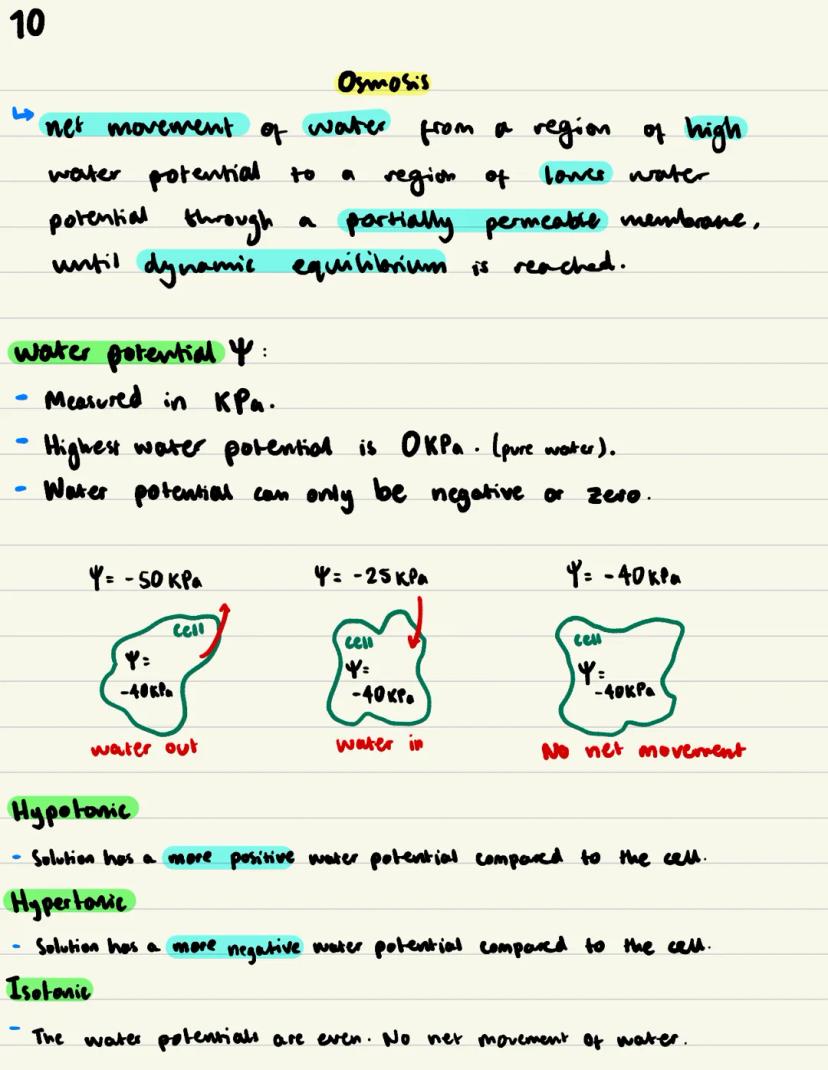 10
Osmosis
↳ net movement of water from a region of high
water potential to a region of lower water
potential through a partially permeable membrane,
until dynamic equilibrium is reached.
Water potential Ψ :
- Measured in KPa.
- Highest water potential is 0KPa. (pure water).
- Water potential can only be negative or zero.
Ψ= -50KPa Ψ= -25KPa Ψ= -40KPa
cell cell cell
Ψ= Ψ= Ψ=
-40KPa -40KPa -40KPa
water out water in No net movement
Hypotonic
- Solution has a more positive water potential compared to the cell.
Hypertonic
- Solution has a more negative water potential compared to the cell.
Isotonic
- The water potentials are even. No net movement of water.